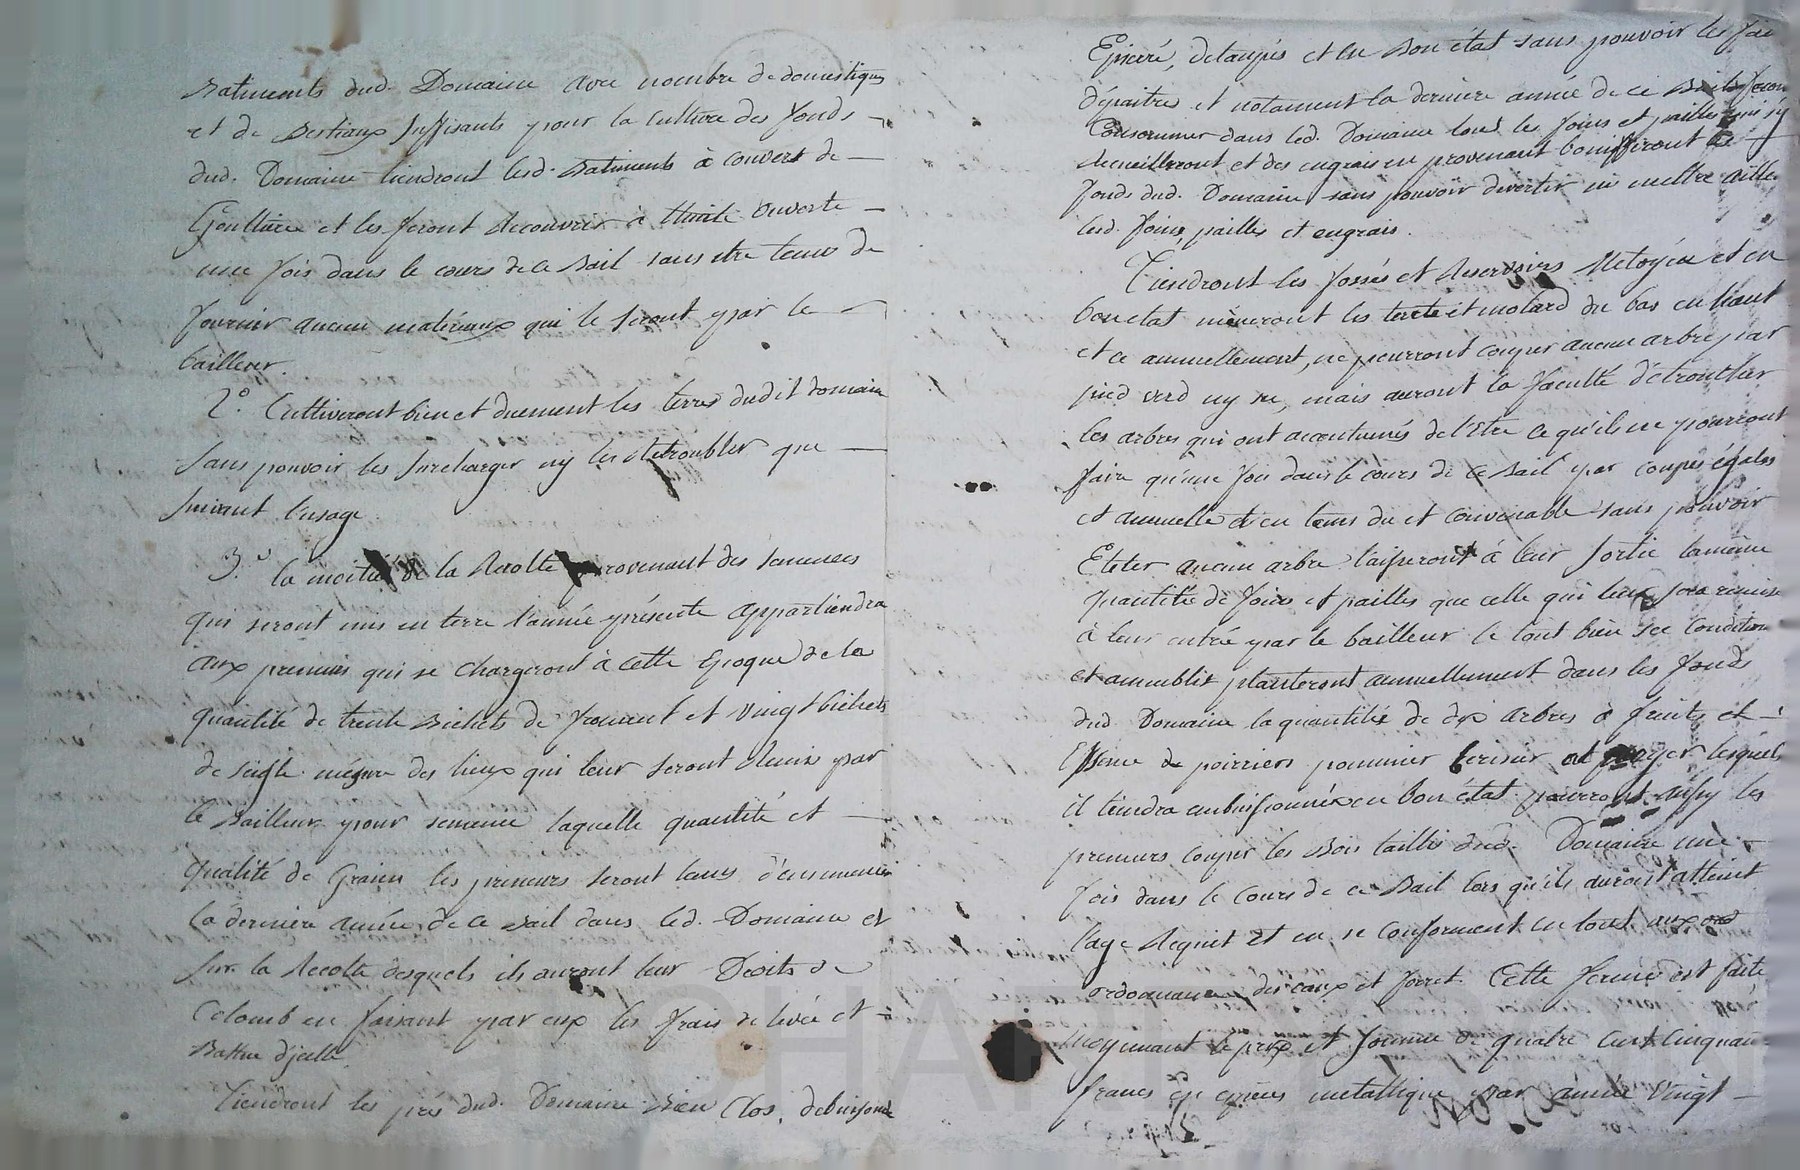 Batiments dud. Domaine avec nombre de domestiques
et de Bestiaux suffisants pour la culture des fonds
dud. Domaine tiendront lesd. Batiments à couvert de
Gouttière et les feront recouvrir à thuile ouverte
une fois dans le cours de ce Bail sans etre tenus de
fournir aucun materiaux qui le seront par le
bailleur.
2.° Cultiveront bien et duement les terres dudit domaine
sans pouvoir les surcharger ny les retroubler que
suivant l'usage.
3.° la moitié de la Recolte provenant des semences
qui seront mis en terre l'année présente appartiendra
aux preneurs qui se chargeront à cette Epoque de la
quantité de trente Bichets de froment et vingt bichets
de seigle mesure des lieux qui leur seront Remis par
le Bailleur pour semence laquelle quantité et
qualité de Grains les preneurs seront tenus d'ensemencer
la derniere année de ce Bail dans led. Domaine et
sur la Recolte desquels ils auront leur Droits de
Colomb en faisant par eux les frais de levée et
Battue d'jcelle.
Tiendront les prés dud. Domaine Bien Clos, debuissoné
Epierré, detaupés et en Bon état sans pouvoir les fai
dépaitre et notament la derniere année de ce Bail, feron
Consommer dans led. Domaine tous les foins et pailles qui s'y
Recueilleront et des engrais en provenant bonniffieront le
fonds dud. Domaine sans pouvoir divertir ni mettre aille
lesd. foins pailles et engrais.
Tiendront les fossés et Reservoirs Netoyés et en
bon etat mèneront les terre et molard du bas en haut
et ce annuellement, ne pourront couper aucun arbre par
pied verd ny sec, mais auront la faculté d'etroncher
les arbres qui ont accoutumés de l'Etre ce qu'ils ne pourront
faire qu'une fois dans le cours de ce Bail par coupes égales
et annuelle et en tems du et convenable sans pouvoir
Eteter aucun arbre laisseront à leur sortie la même
quantité de foins et pailles que celle qui leur sera remise
à leur entrée par le bailleur le tout bien sec Condition
et ammeublis planteront annuellement dans les fonds
dud. Domaine la quantité de dix arbres à fruits et
Essence de poirriers pommier Cerisier et noyer lesquels
il tiendra enbuissonnés en bon état pourront aussy les
preneurs couper les Bois taillis dud. Domaine une
fois dans le cours de ce Bail lors qu'ils auront atteint
l'age Requit et en se conformant en tout aux ord
ordonnance des eaux et forret. Cette ferme est faite
moyennant le prix et somme de quatre cent cinquan
francs en espèces metallique par année Vingt